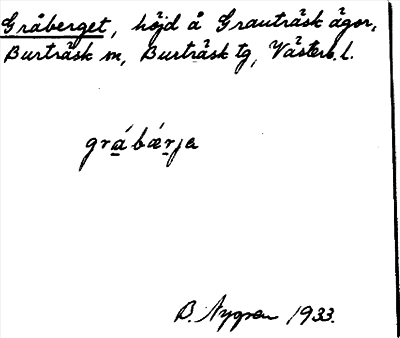 Gråberget, höjd å Grauträsk ägor,
Burträsk sn, Burträsk tg, Västerb. l.
grábǽrja
B. Nygren 1933.